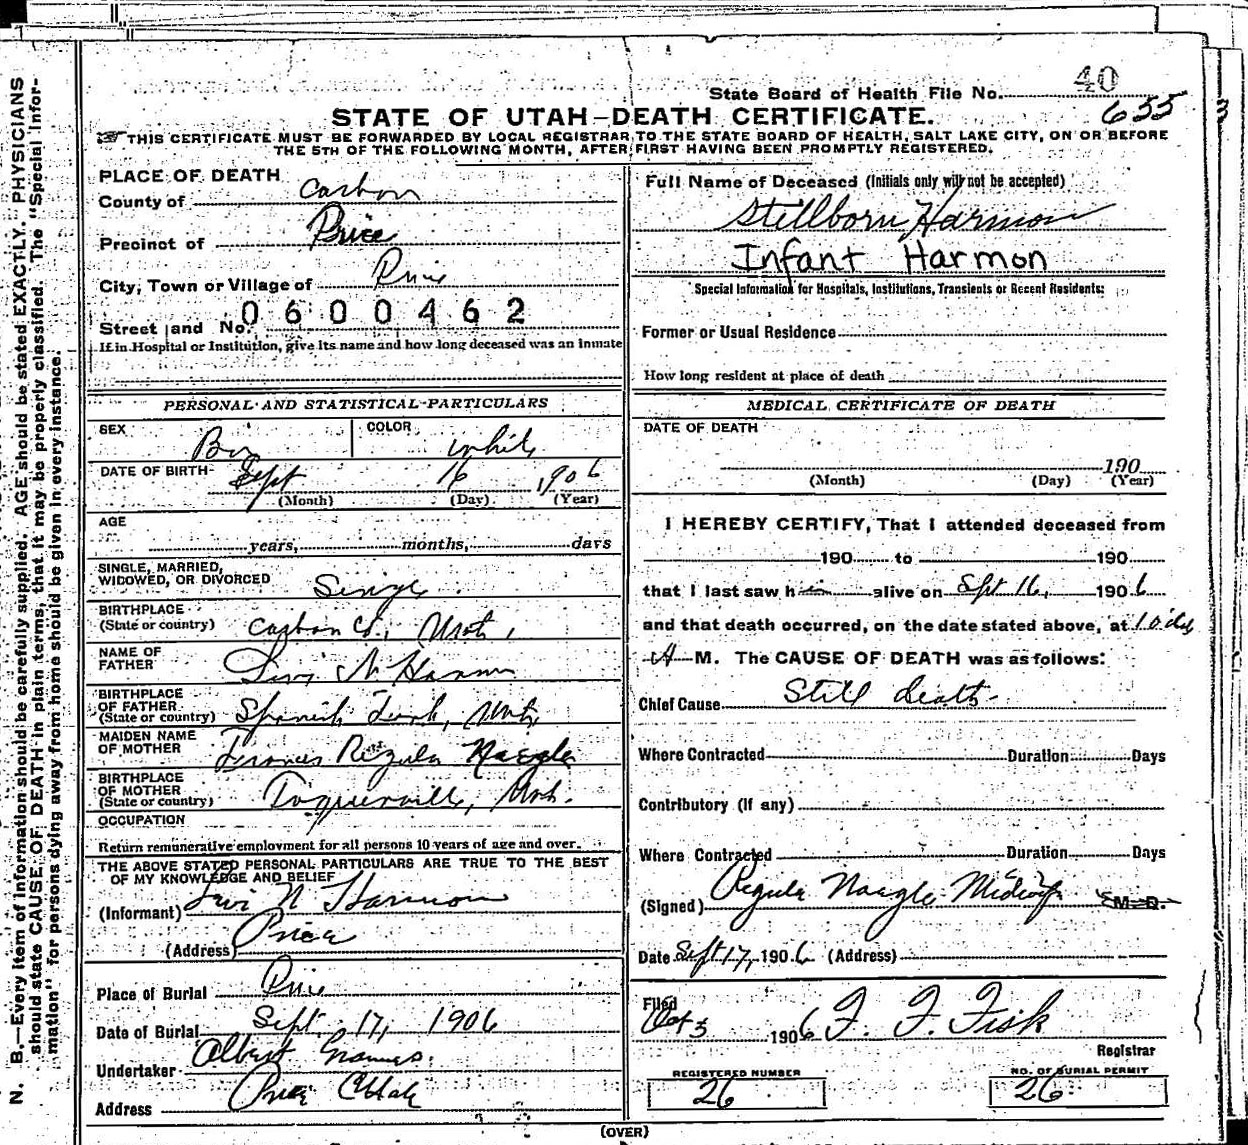 State Board of Health File No. 40
655
STATE OF UTAH–DEATH CERTIFICATE.
THIS CERTIFICATE MUST BE FORWARDED BY LOCAL REGISTRAR TO THE STATE BOARD OF HEALTH, SALT LAKE CITY, ON OR BEFORE
THE 5TH OF THE FOLLOWING MONTH, AFTER FIRST HAVING BEEN PROMPTLY REGISTERED.
N. B.—Every item of information should be carefully supplied. AGE should be stated EXACTLY. PHYSICIANS
should state CAUSE OF DEATH in plain terms, that it may be properly classified. The "Special Infor-
mation" for persons dying away from home should be given in every instance.
PLACE OF DEATH
County of Carbon
Precinct of Price
City, Town or Village of Price
0600462
Street and No.
If in Hospital or Institution, give its name and how long deceased was an inmate
PERSONAL AND STATISTICAL PARTICULARS
SEX Boy COLOR white
DATE OF BIRTH Sept 16 1906
(Month) (Day) (Year)
AGE
years, months, days
SINGLE, MARRIED,
WIDOWED, OR DIVORCED Single
BIRTHPLACE
(State or country) Carbon Co., Utah,
NAME OF
FATHER Levi N Harmon
BIRTHPLACE
OF FATHER
(State or country) Spanish Fork, Utah
MAIDEN NAME
OF MOTHER Regula Naegle
BIRTHPLACE
OF MOTHER
(State or country) Toquerville, Utah.
OCCUPATION
Return remunerative employment for all persons 10 years of age and over.
THE ABOVE STATED PERSONAL PARTICULARS ARE TRUE TO THE BEST
OF MY KNOWLEDGE AND BELIEF
(Informant) Levi N Harmon
(Address) Price
Place of Burial Price
Date of Burial Sept. 17, 1906
Undertaker Albert
Address Price Utah
Full Name of Deceased (Initials only will not be accepted)
Stillborn Harmon
Infant Harmon
Special Information for Hospitals, Institutions, Transients or Recent Residents:
Former or Usual Residence
How long resident at place of death
MEDICAL CERTIFICATE OF DEATH
DATE OF DEATH
190
(Month) (Day) (Year)
I HEREBY CERTIFY, That I attended deceased from
190 to 190
that I last saw him alive on Sept 16, 1906
and that death occurred, on the date stated above, at 10
A M. The CAUSE OF DEATH was as follows:
Chief Cause Still
Where Contracted Duration Days
Contributory (If any)
Where Contracted Duration Days
(Signed) Regula Naegle Midwife M. D.
Date Sept 17, 1906 (Address)
Filed
Oct 5 1906 F. F. Fisk
Registrar
REGISTERED NUMBER
26
NO. OF BURIAL PERMIT
26
(OVER)